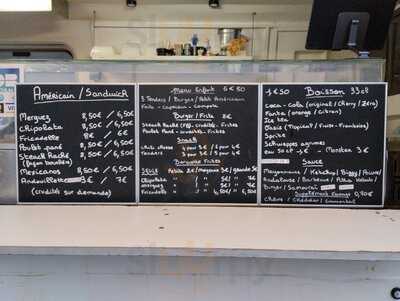 Américain / Sandwich
Merguez 8,50€ / 6,50€
Chipolata 8,50€ / 6,50€
Fricadelle 8€ / 6€
Poulet pané 8,50€ / 6,50€
Steack Haché 8,50€ / 6,50€
(façon boulher)
Mexicanos 8,50€ / 6,50€
Andouillette 9€ / 7€
(crudités sur demande)
Menu Enfant 6€50
3 Tenders / Burger / Petit Américain
Frite - Capricun - Compote
Burger / Frite 8€
Steack Haché
Poulet Pané - crudités - Frites
Snack
Tenders
Barquette Frites
SEULE Petite 3€ / moyenne 4€ / grande 5€
Chipolatas
Merguez
Fricadelle
1€50 Boisson 33cl
Coca-Cola (original / Cherry / Zéro)
Fanta (orange / Citron)
Ice tea
Oasis (Tropical / Fraise-Framboise)
Sprite
Schweppes agrumes
eau 50cl 1€ - Monster 3€
Sauce
Mayonnaise / Ketchup / Biggy / Poivre /
Andalouse / Barbecue /
Burger / Samouraï
Supplément Fromage 0,80€
Chèvre / Cheddar / Camembert